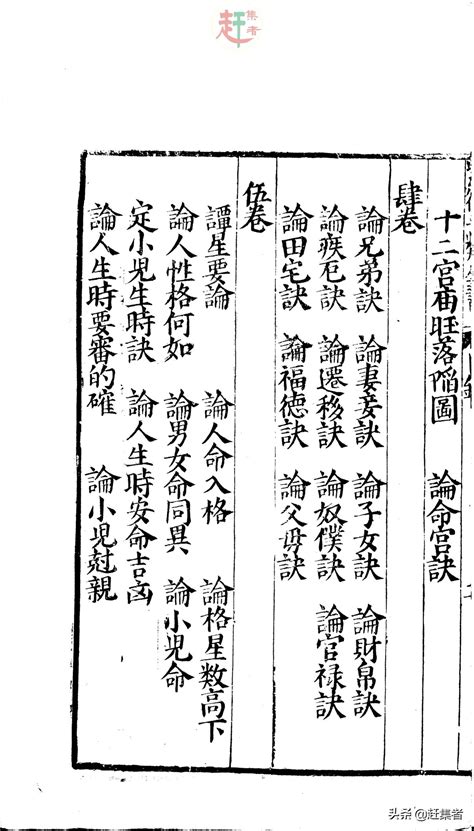 赶集者
十二宮庙旺落陷圖　論命宮訣
肆卷
論兄弟訣　論妻妾訣　論子女訣　論財帛訣
論疾厄訣　論遷移訣　論奴僕訣　論官禄訣
論田宅訣　論福德訣　論父母訣
伍卷
譚星要論　論人命入格　論格星数高下
論人性格何如　論男女命同異　論小児命
定小児生時訣　論人生時安命吉凶
論人生時要審的確　論小児尅親
头条@赶集者